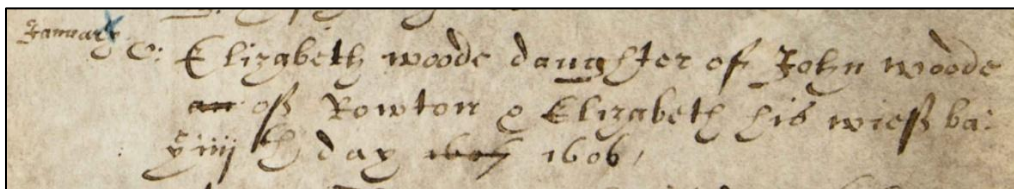 January C: Elizabeth woode daughter of John woode
an of Rowton & Elizabeth his wieff ba:
xiiij th day 1606 /